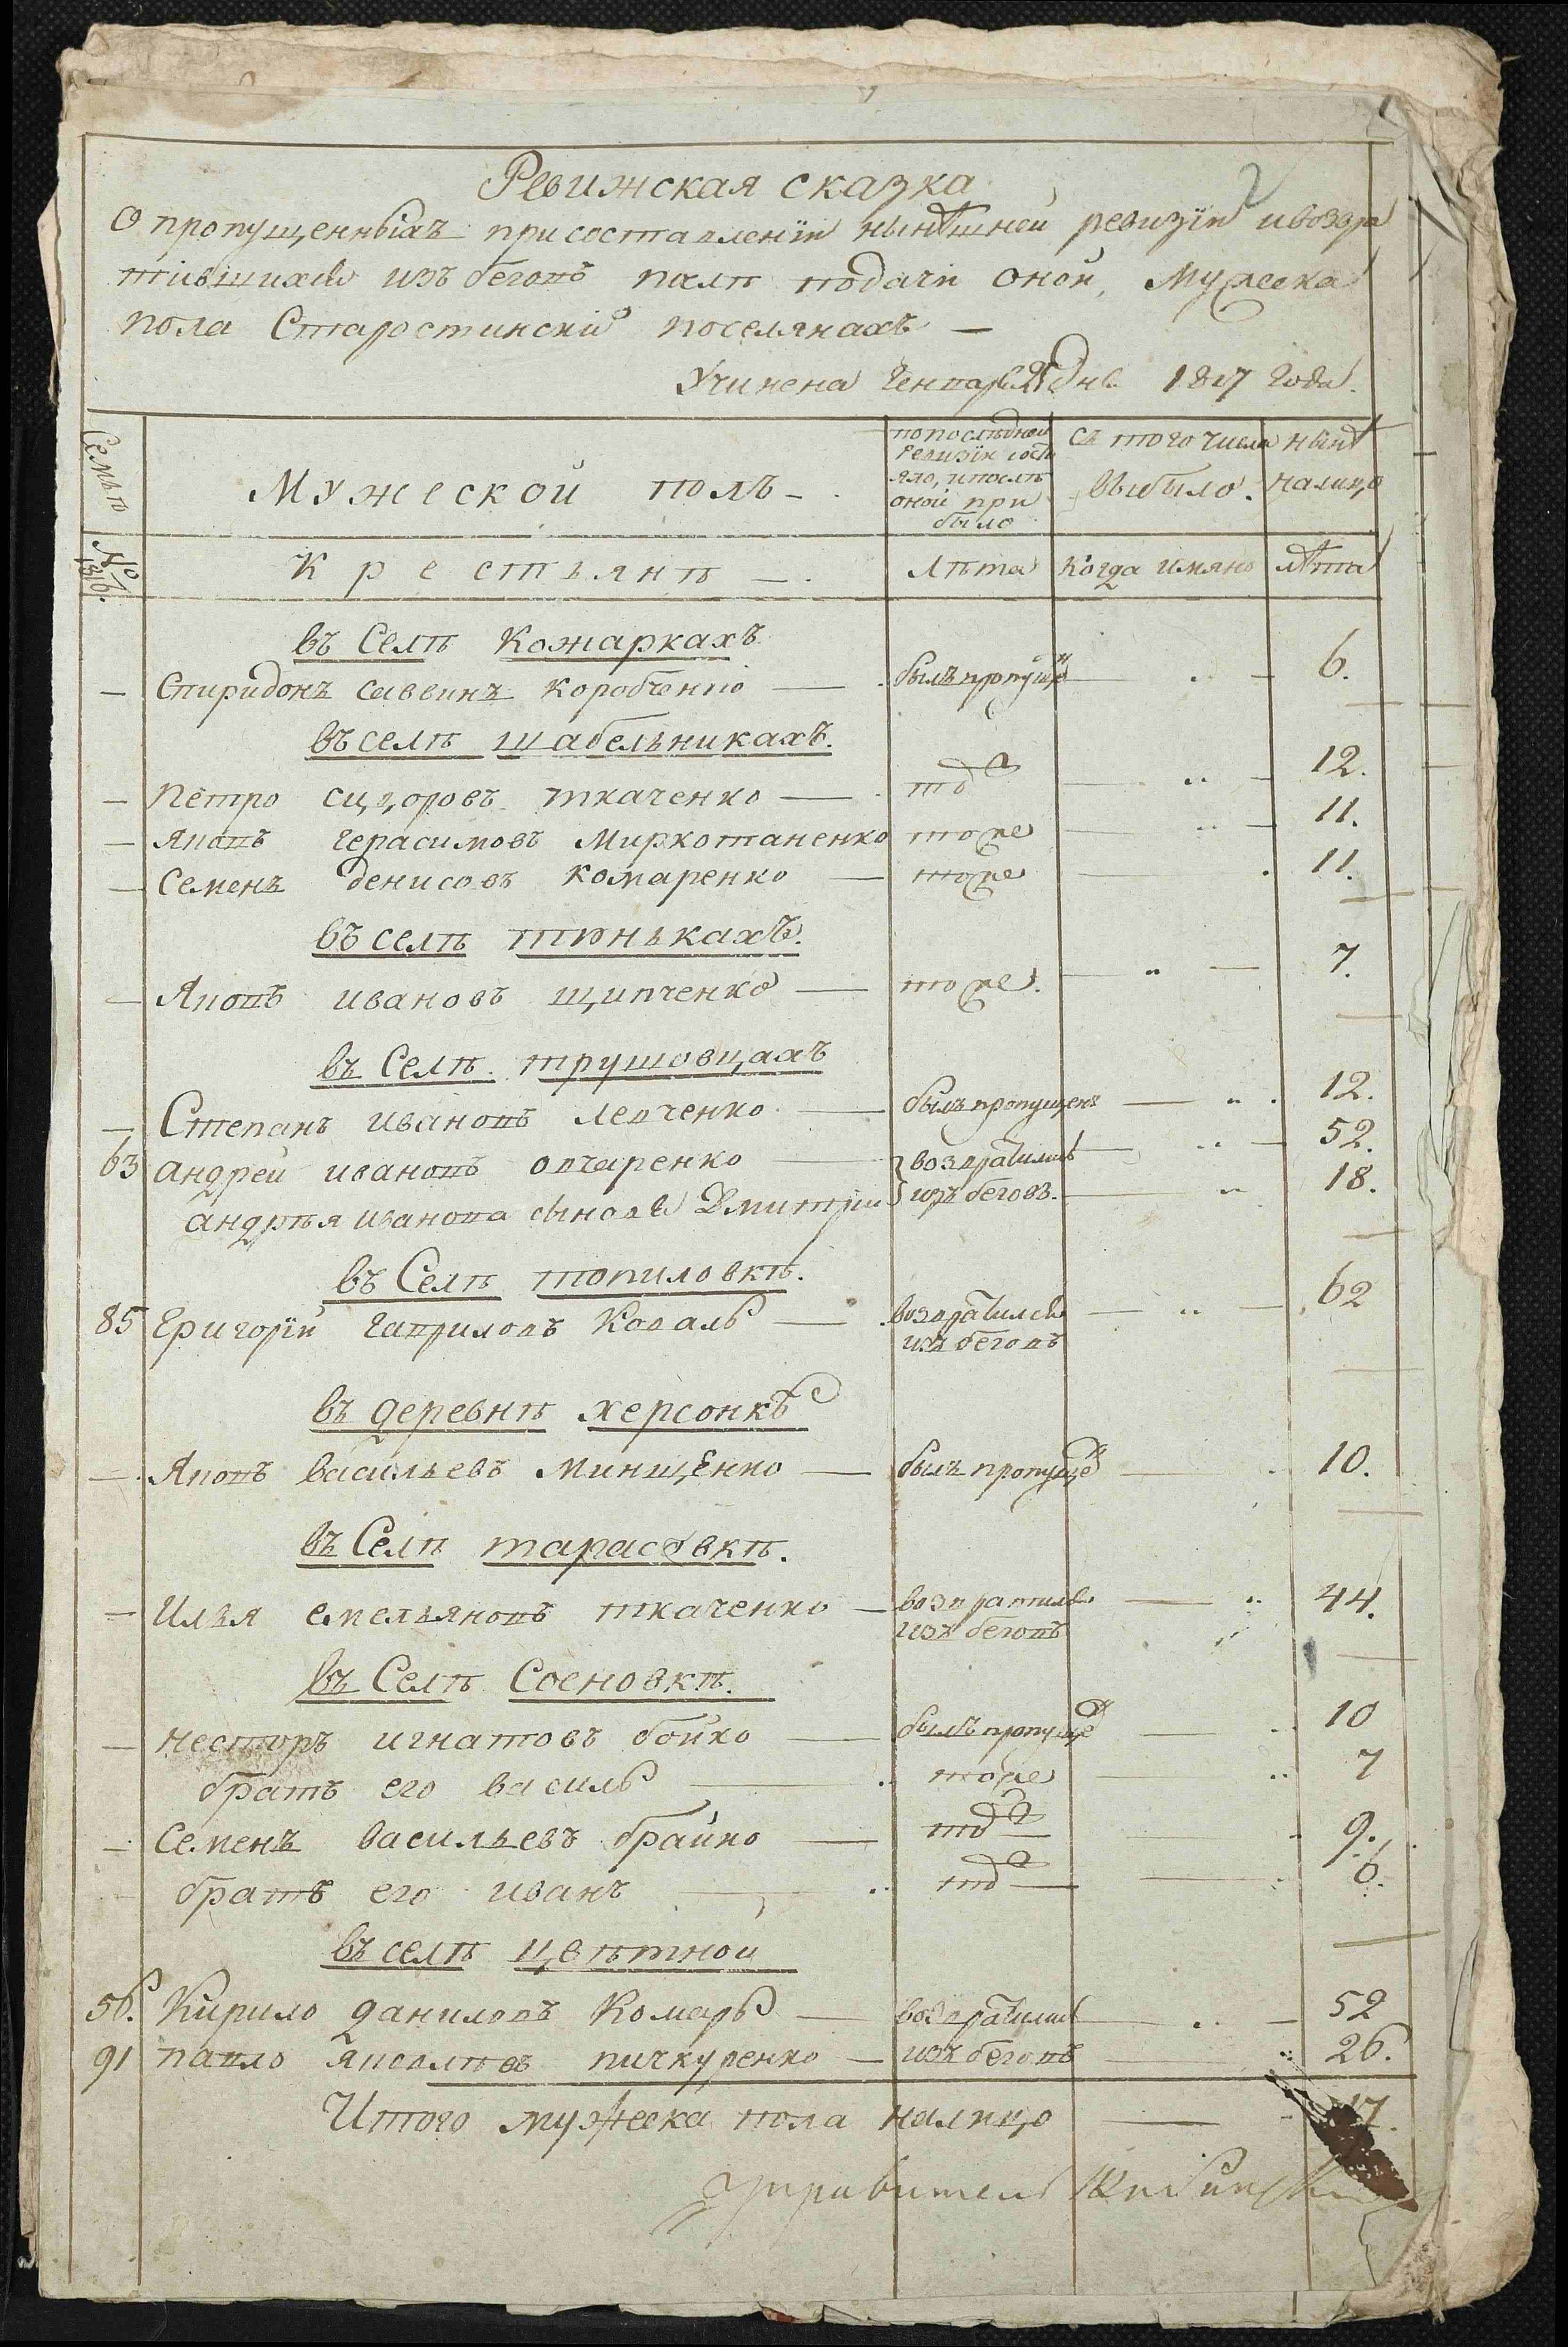 2
Ревижская сказка
О пропущенныхъ присоставленіи нынѣшней ревизіи ивозвра
тившихся изъ беговъ послѣ подачи оной, Мужеска
пола Старостинскихъ поселянахъ —
Учинена Генваря 25 дня 1817 Года.
Семьи | Мужеской полъ — | попослѣдней ревизіи состояло, ипослѣ оной прибыло | съ того числа выбыло. | нынѣ налицо
№ | Крестьянѣ — | Лѣта | Когда имяно | Лѣта
въ Селѣ Кожаркахъ
— Спиридонъ саввинъ коробченко — былъ пропущен — 6.
въ селѣ шабельникахъ.
— Петро сидоровъ ткаченко — то д — 12.
— Яковъ герасимовъ Миркотаненко тоже — 11.
— Семенъ денисовъ комаренко — тоже — 11.
въ селѣ тинькахъ.
— Яковъ ивановъ щипченко — тоже. — 7.
въ Селѣ трушовцахъ
— Степанъ ивановъ левченко — былъ пропущенъ — 12.
63 андрей ивановъ овчаренко — возвратились — 52.
андрѣя иванова сынъ Дмитрій изъ беговъ. — 18.
въ Селѣ топиловкѣ.
85 Григорій гавриловъ Коваль — возвратился — 62
изъ беговъ
въ деревнѣ херсонкѣ
— Яковъ васильевъ минщенко — былъ пропущен — 10.
въ Селѣ тарасовкѣ.
— Илья емельяновъ ткаченко — возвратился — 44.
изъ беговъ
въ Селѣ Сосновкѣ.
— несторъ игнатовъ бойко — былъ пропущен — 10
братъ его василь — тоже — 7
— Семенъ васильевъ брайко — то д — 9.
братъ его иванъ — то д — 6.
въ селѣ цвѣтной
56. Кирило даниловъ Комарь — возвратились — 52
91 павло яковлевъ пичкуренко — изъ беговъ — 26.
Итого мужеска пола налицо — 17.
Управитель